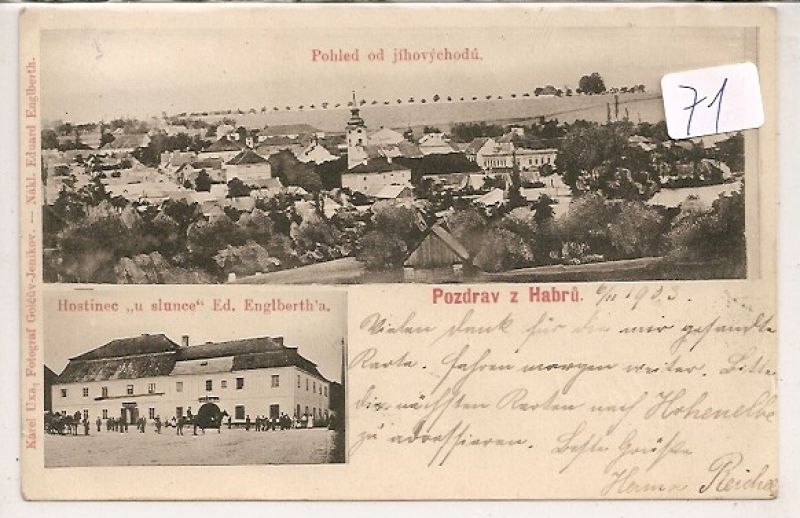 Pohled od jíhovýchodú.
71
Karel Uxa, Fotograf Golčův-Jeníkov. — Nákl. Eduard Englberth.
Hostinec „u slunce" Ed. Englberth'a.
Pozdrav z Habrů. 6/11 1903.
Vielen dank für die mir gesandte
Karte. Fahren morgen weiter. Bitte
die nächsten Karten nach Hohenelbe
zu adressieren. Beste Grüße
Reiche